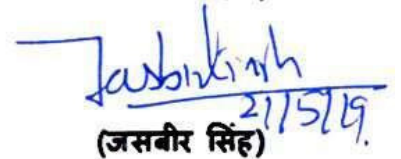 Jasbir Singh
21/5/19.
(जसबीर सिंह)